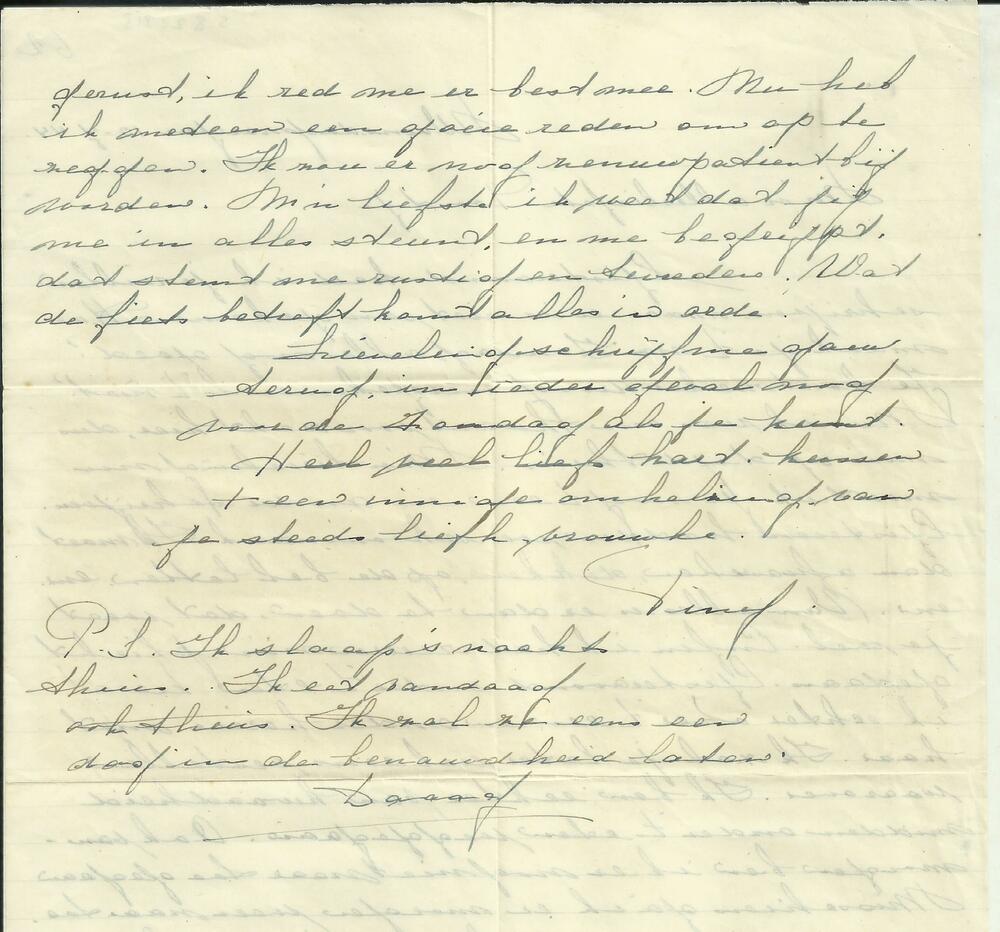 gerust, ik red me er best mee. Nu heb
ik meteen een goeie reden om op te
zeggen. Ik zou er nog zenuwpatient bij
worden. M'n liefste ik weet dat jij
me in alles steunt, en me begrijpt,
dat stemt me rustig en tevreden. Wat
de fiets betreft komt alles in orde.
Lieveling schrijf me gauw
terug, in ieder geval nog
voor de Zondag als je kunt.
Heel veel liefs hart. kussen
+ een innige omhelzing van
je steeds liefh. vrouwke.
P.S. Ik slaap 's nachts
thuis. Ik eet vandaag
ook thuis. Ik zal ze eens een
dag in de benauwdheid laten.
Daaag